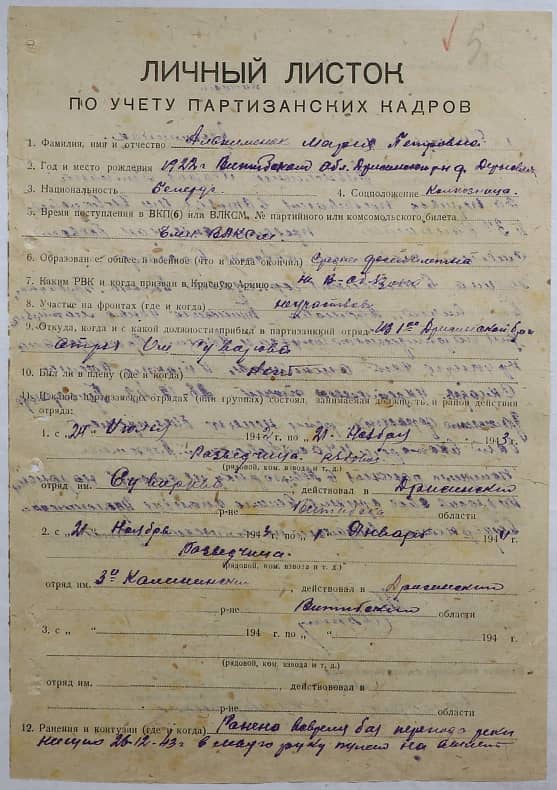 5.
ЛИЧНЫЙ ЛИСТОК
ПО УЧЕТУ ПАРТИЗАНСКИХ КАДРОВ
1. Фамилия, имя и отчество Мария Петровна
2. Год и место рождения 1922 г Витебской обл. д.
3. Национальность Белорус 4. Соцположение Колхозница.
5. Время поступления в ВКП(б) или ВЛКСМ, № партийного или комсомольского билета
Член ВЛКСМ.
6. Образование общее и военное (что и когда окончил) Средне
7. Каким РВК и когда призван в Красную Армию
8. Участие на фронтах (где и когда)
9. Откуда, когда и с какой должности прибыл в партизанский отряд Из 1ой Дриссинской
отряд Суворова
10. Был ли в плену (где и когда)
11. В каких партизанских отрядах (или группах) состоял, занимаемая должность и район действия
отряда:
1. с „24" 194 г. по „21" Ноября 1943 г.
Разведчица.
(рядовой, ком. взвода и т. д.)
отряд им. Суворова действовал в Дриссинский
р-не Витебской области
2. с „21" Ноября 1943 г. по „1" Января 194 г.
Разведчица.
(рядовой, ком. взвода и т. д.)
отряд им. 3й Калининский, действовал в Дрисинский
р-не Витибский области
3. с „ " 194 г. по „ " 194 г.
(рядовой, ком. взвода и т. д.)
отряд им. , действовал в
р-не области
12. Ранения и контузии (где и когда) Ранена вовремя боя реки
26-12-43 г в руку пулей на